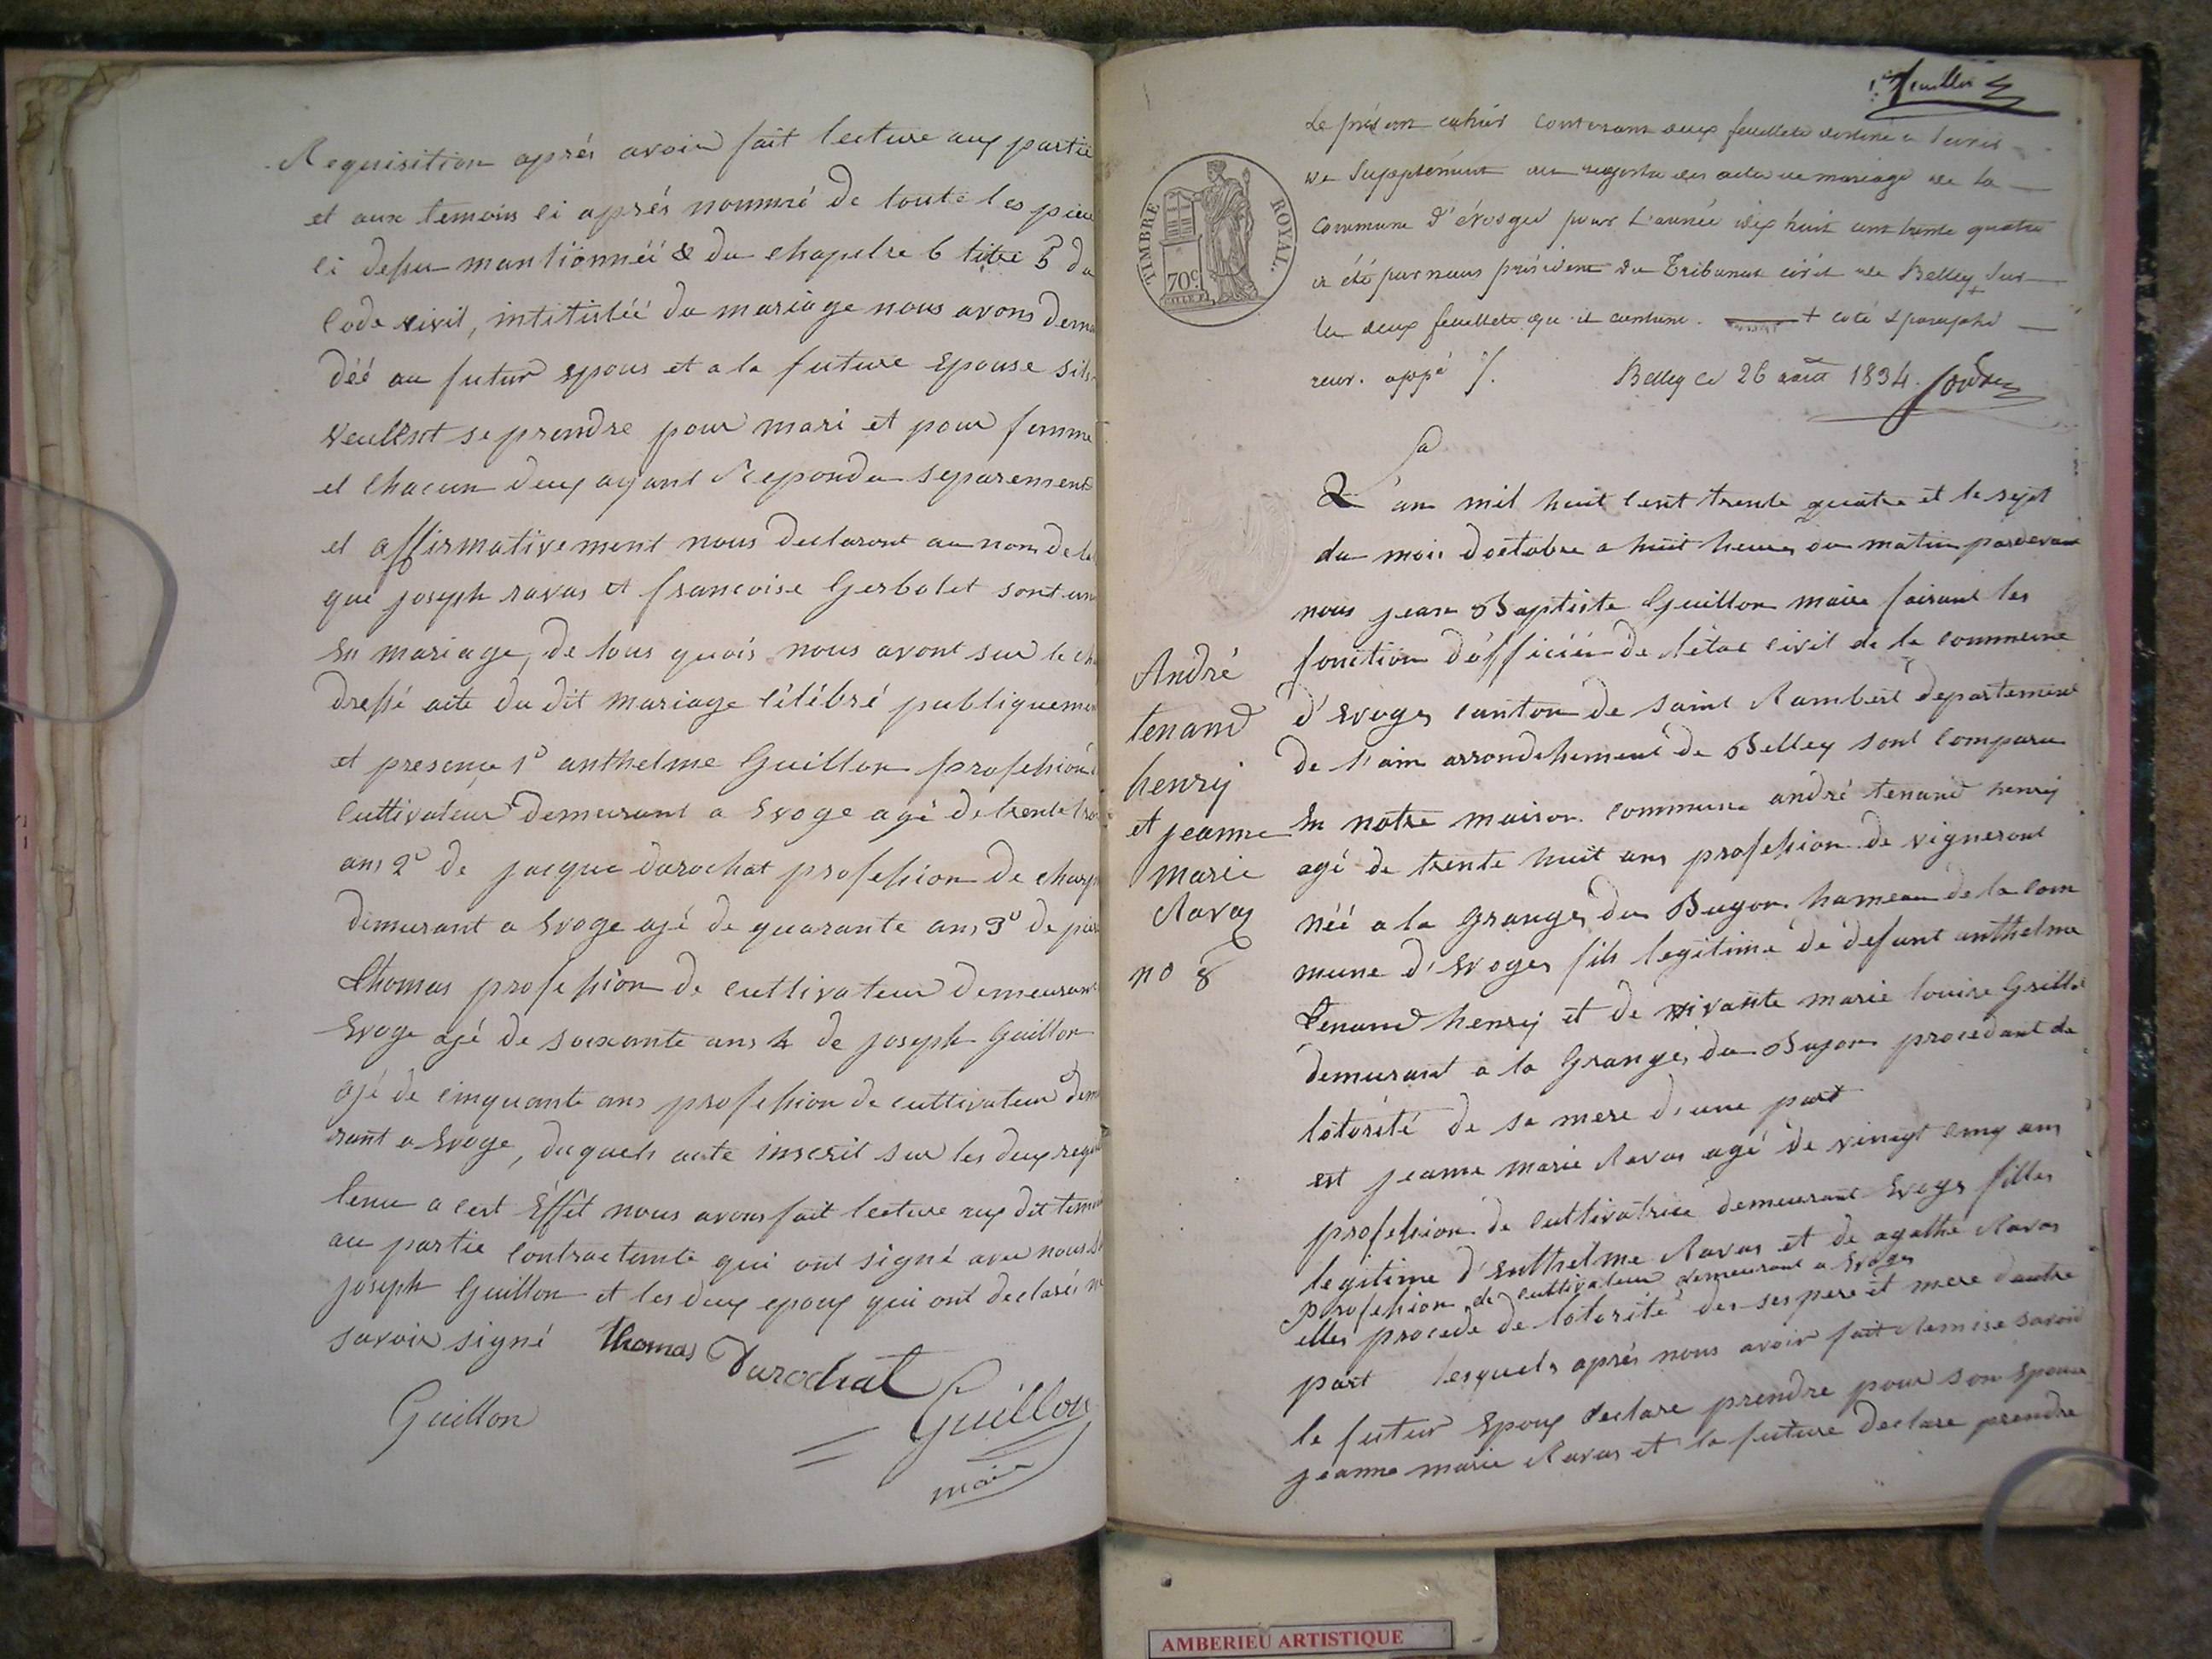 Requisition aprés avoir fait lecture aux partie
et aux temoins ci aprés nommé de toute les piece
ci dessu mantionnéé & du chapitre 6 titre 5 du
Code civil, intituléé du mariage nous avons deman
déé au futur epous et a la future epouse sils
veullent se prendre pour mari et pour femme
et chacun deux ayant Repondu separement
et affirmativement nous declaront au nom de la
que joseph ravas et francoise Gerbolet sont uni
En mariage, de tous quois nous avont sur le cha
dressé acte du dit mariage célébré publiquemen
et presence 1º anthelme Guillon profession
Cultivateur demeurant a Evoge agé de trente
ans 2º de jacque durochat profession de charp
demurant a Evoge agé de quarante ans 3º de pier
thomas profession de cultivateur demeurant
Evoge agé de soixante ans 4 de joseph Guillon
agé de cinquante ans profession de cultivateur dem
rant a Evoge, duquels acte inscrit sur les deux regi
tenu a cest éffet nous avons fait lecture aux dit temoi
au partie Contractante qui ont signé avec nous
joseph Guillon et les deux epoux qui ont declarés ne
savoir signé thomas Durochat
Guillon Guillon
maire
1er feuillet
Le présent cahier contenant deux feuillets destiné a servir
de Supplément au registre des actes de mariage de la
commune d'évosges pour L'année dix huit cent trente quatre
a été par nous président du Tribunal civil de Belley sur
les deux feuillets qu'il contient. + coté & paraphé
renv. appé /. Belley ce 26 août 1834.
TIMBRE ROYAL.
70c
L'an mil huit cent trente quatre et le sept
du mois doctobre a huit heures du matin pardevant
nous jean Baptiste Guillon maire faisant les
fonction d'officiéé de létat civil de la commune
d'Evoges canton de Saint Rambert departement
de l'ain arrondissement de Belley sont comparu
En notre maison commune andré tenand henrij
agé de trente huit ans profession de vigneront
néé a la Grange du Bugon hameau de la com
mune d'Evoges fils legitime de defunt anthelme
tenand henrij et de vivante marie louise Grillo
demeurant a la Grange du Bugon procedant de
lotorité de sa mere d'une part
est jeanne marie Ravas agé de vinegt cinq ans
profession de cultivatrice demeurant Evoges filles
legitime d'enthelme Ravas et de agathe Ravas
profession de cultivateur demeurant a Evoges
elles procede de lotorité des ses pere et mere dautre
part lesquels aprés nous avoir fait Remise savoir
le futur Epoux declare prendre pour son Epouse
jeanne marie Ravas et la future declare prendre
André
tenand
henrij
et jeanne
marie
Ravas
no 8
AMBERIEU ARTISTIQUE